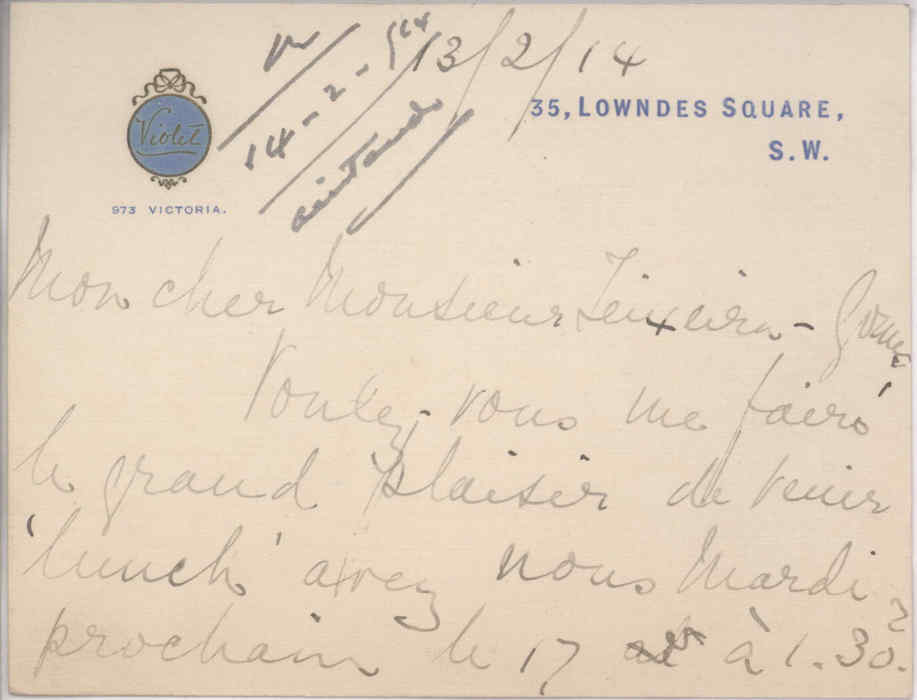 13/2/14
14-2-914
Violet
35, LOWNDES SQUARE,
S.W.
973 VICTORIA.
Mon cher Monsieur Teixeira-Gomes
Voulez-vous me faire
le grand plaisir de venir
'lunch' avec nous Mardi
prochain le 17 à 1.30?